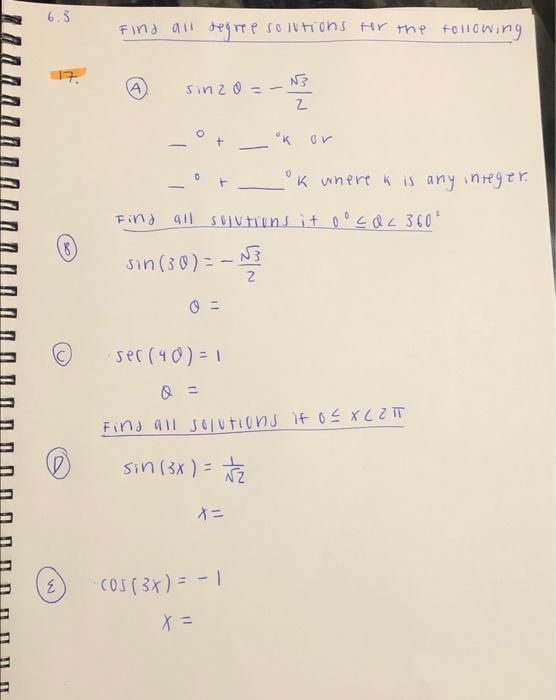 6.3
Find all degree solutions for the following
17.
A sin2θ = -√3/2
_° + _°k or
_° + _°k where k is any integer.
Find all solutions if 0° ≤ θ < 360°
B
sin(3θ) = -√3/2
θ =
C sec(4θ) = 1
θ =
Find all solutions if 0 ≤ x < 2π
D sin(3x) = 1/√2
x =
E cos(3x) = -1
x =